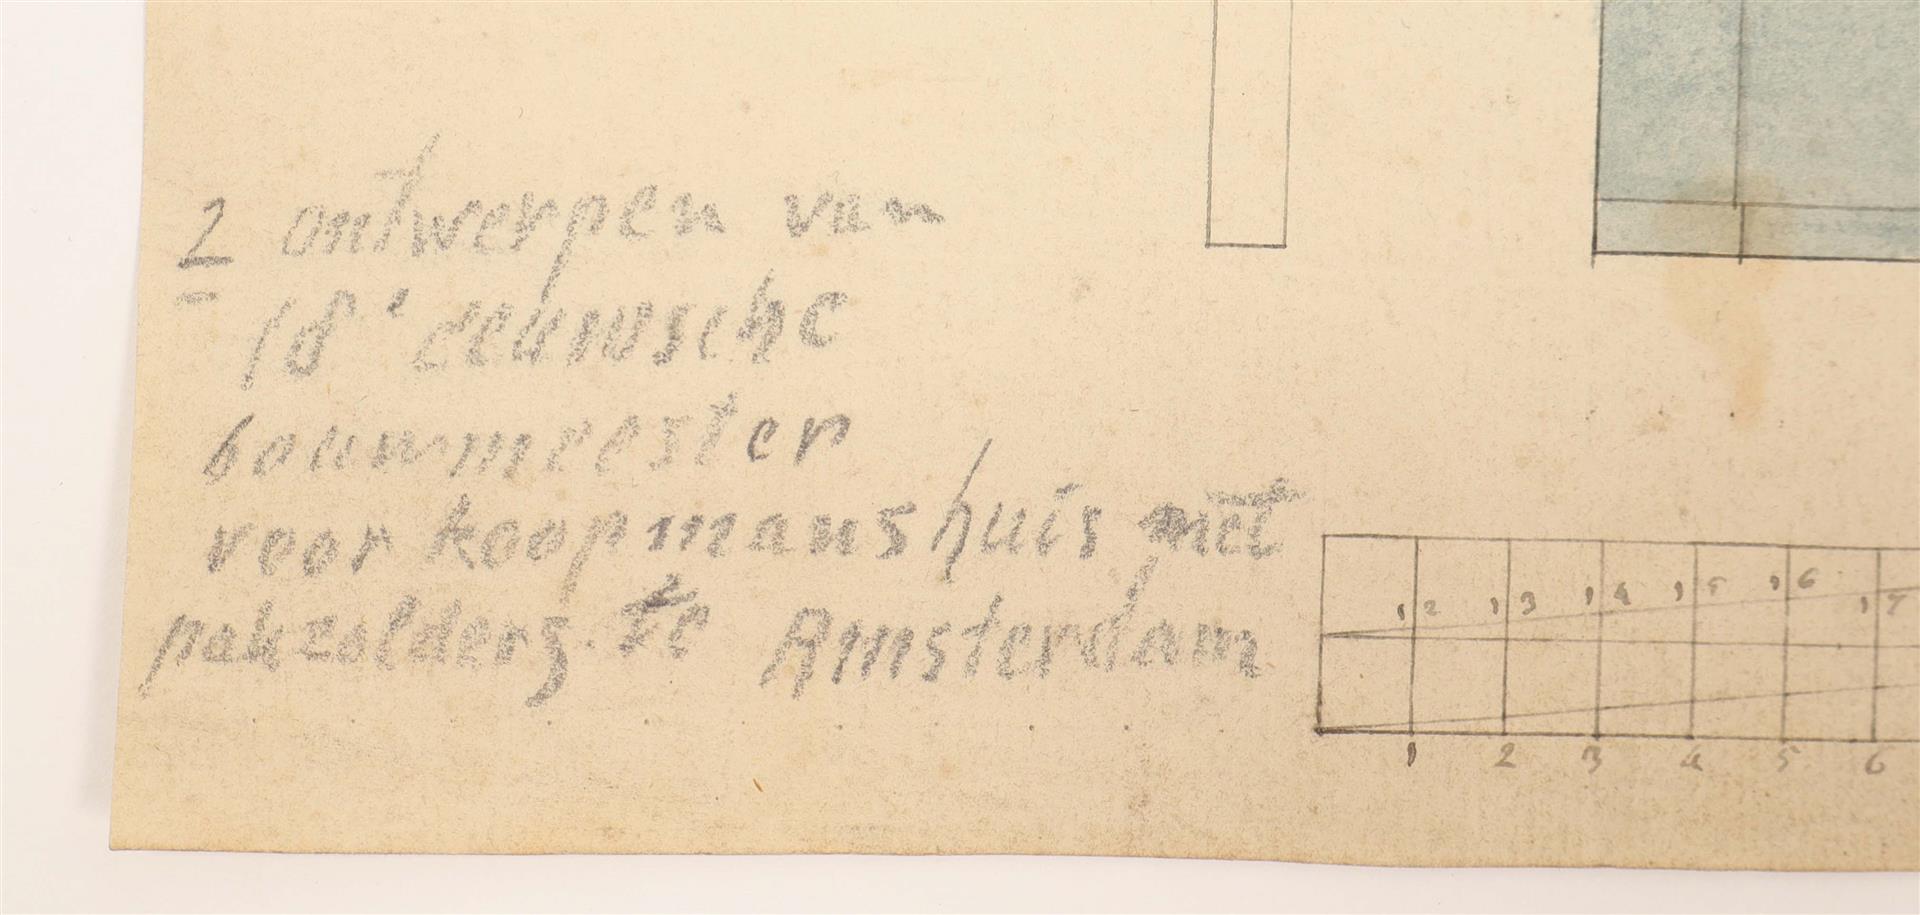 2 ontwerpen van
18e eeuwsche
bouwmeester
voor koopmanshuis met
pakzolders te Amsterdam
12 13 14 15 16 17
1 2 3 4 5 6